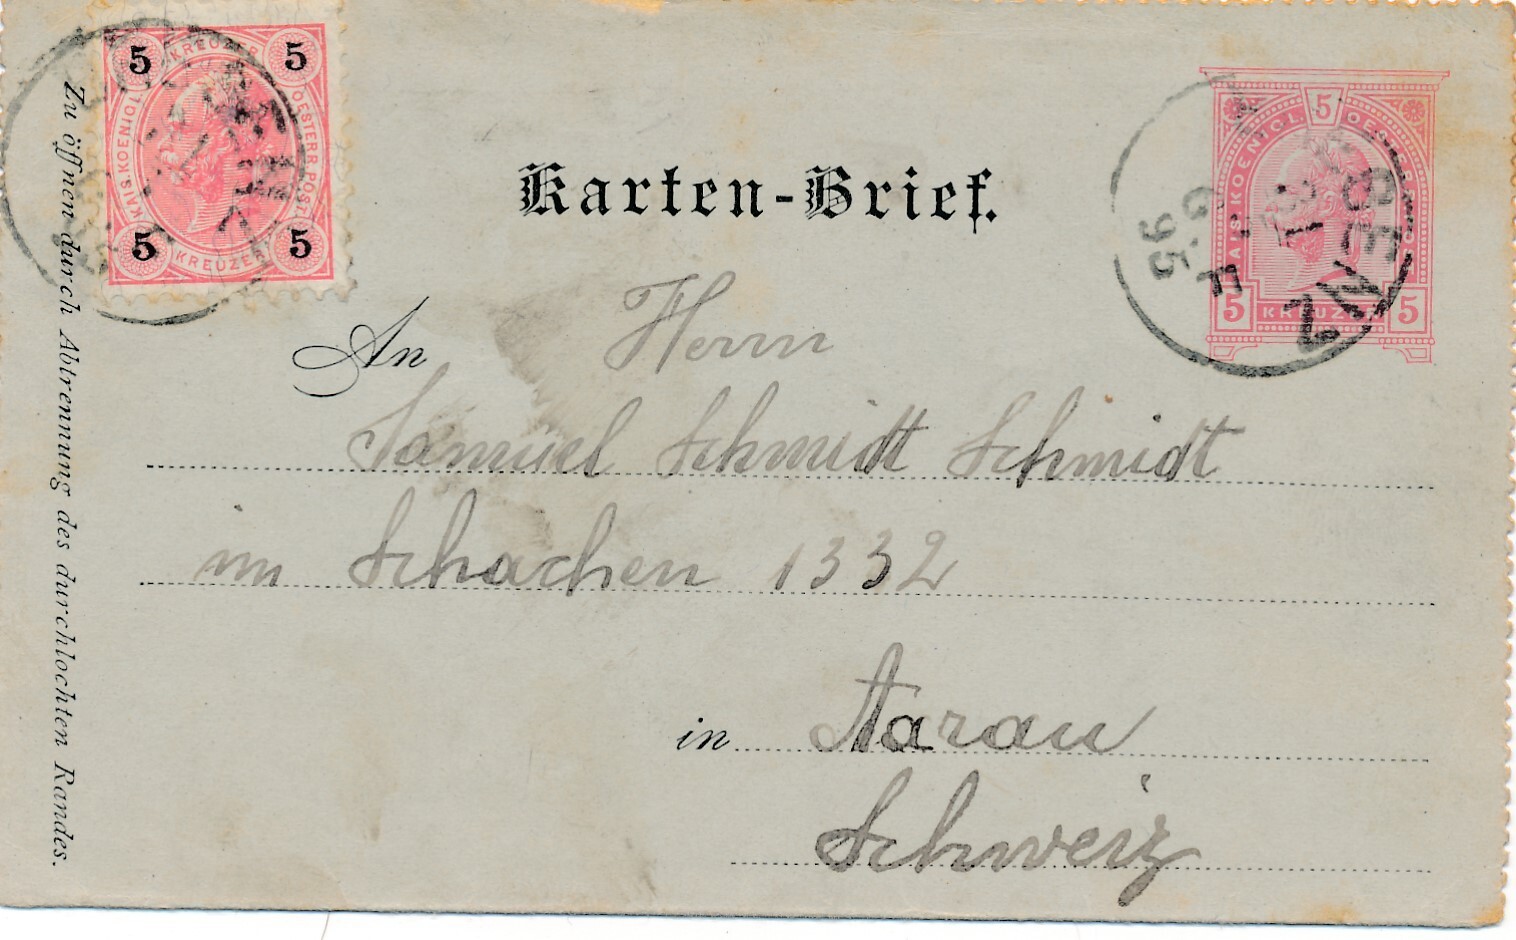 5 KREUZER 5
KAIS. KOENIGL. OESTERR. POST.
5 KREUZER 5
Karten-Brief.
5
KAIS. KOENIGL. OESTERR.
5 KREUZER 5
BENZ
95
Zu öffnen durch Abtrennung des durchlochten Randes.
An Herrn
Samuel Schmidt Schmidt
im Schachen 1332
in Aarau
Schweiz